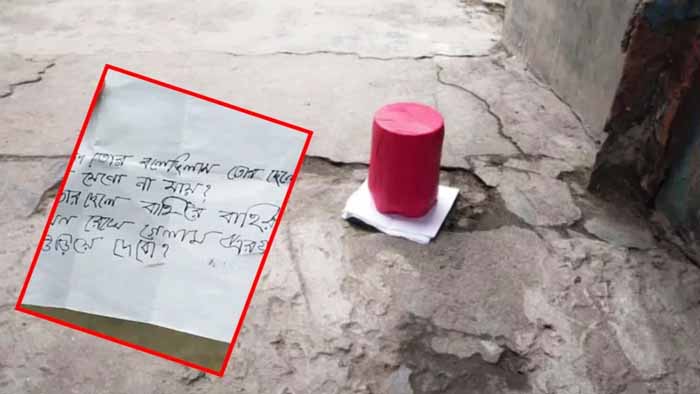 তোর বলেছিলাম তোর ছেলে
যেনো না যায়?
তোর ছেলে বাহিরে বাহির
রেখে গেলাম এরপর
উড়িয়ে দেবো?